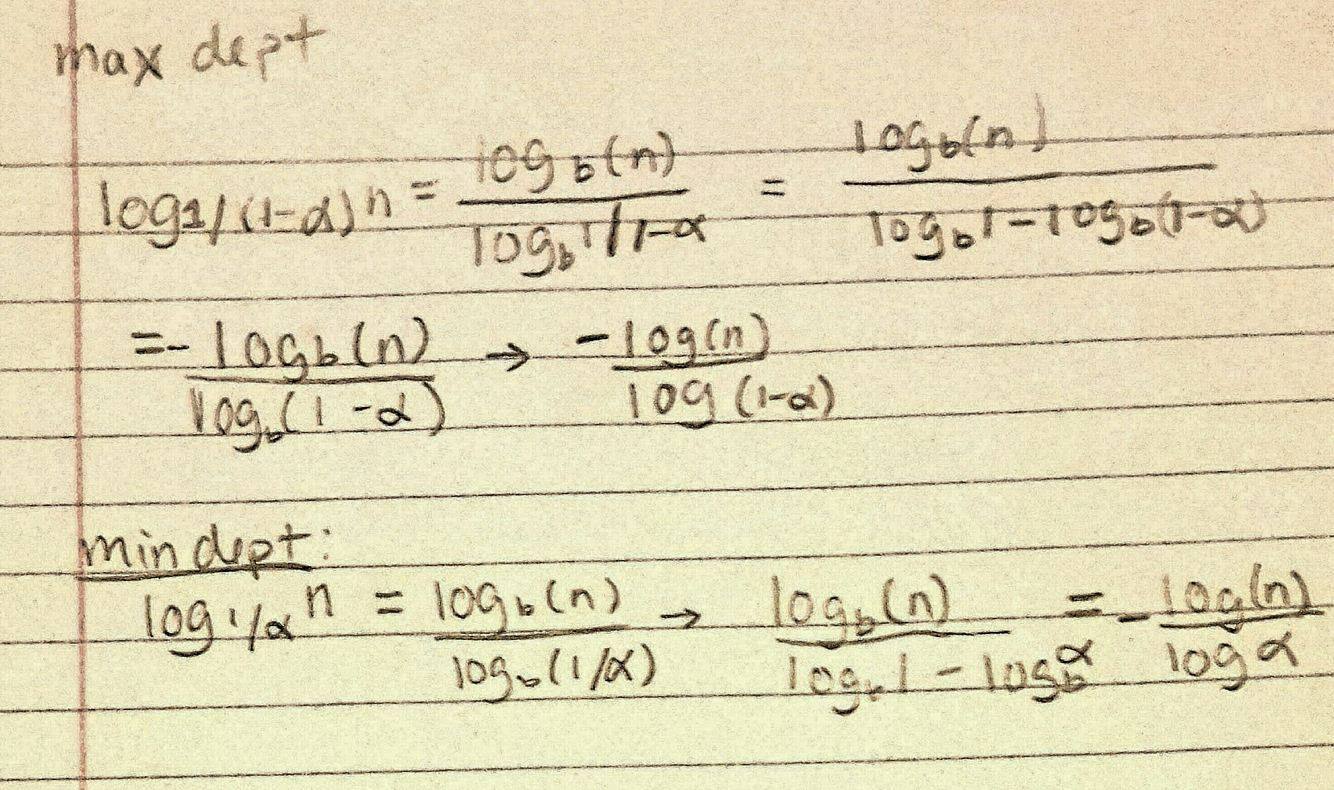 max dept
log1/(1-α) n = log b(n) / log b 1/1-α = log b(n) / log b 1 - log b(1-α)
= - log b(n) / log b(1-α) → -log(n) / log(1-α)
min dept:
log 1/α n = log b(n) / log b(1/α) → log b(n) / log b 1 - log b α = - log(n) / log α